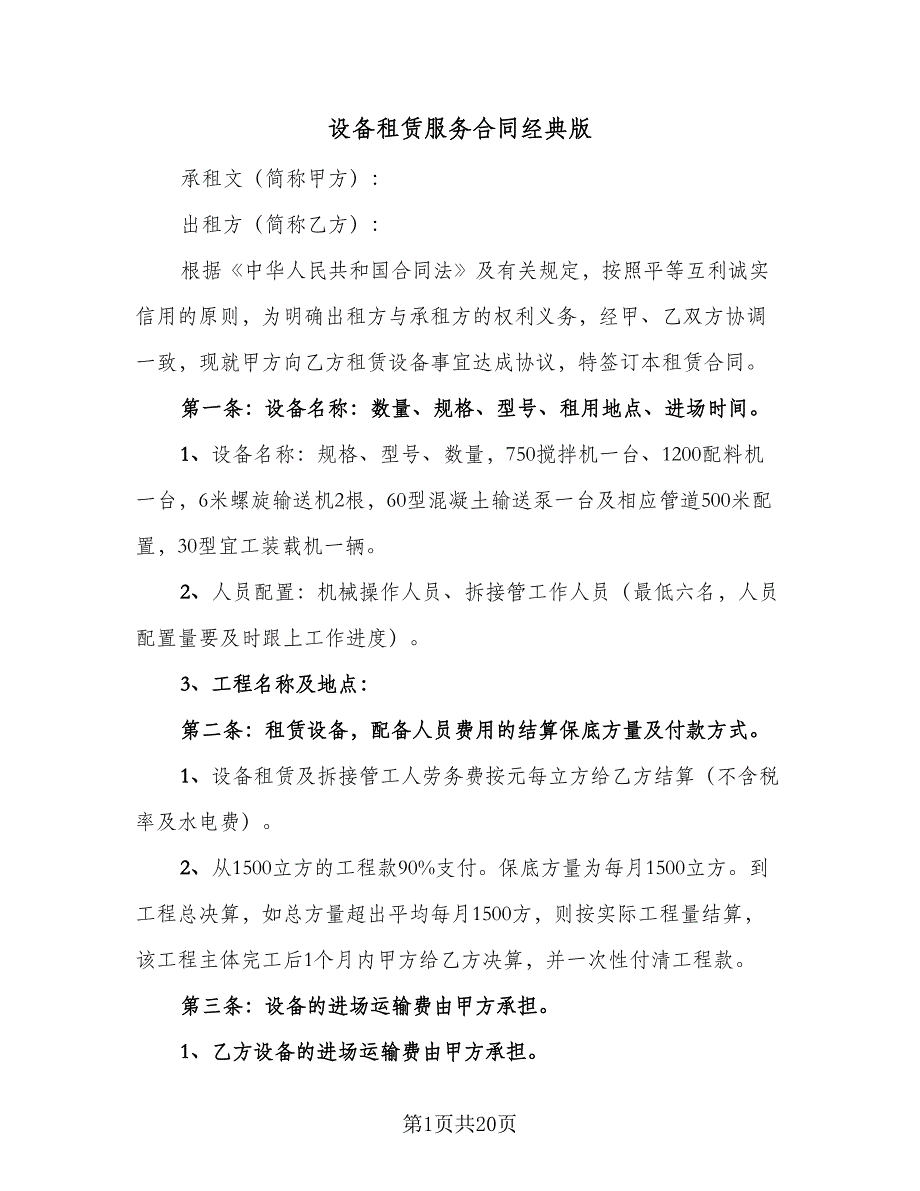 设备租赁服务合同经典版
承租文（简称甲方）：
出租方（简称乙方）：
根据《中华人民共和国合同法》及有关规定，按照平等互利诚实
信用的原则，为明确出租方与承租方的权利义务，经甲、乙双方协调
一致，现就甲方向乙方租赁设备事宜达成协议，特签订本租赁合同。
第一条：设备名称：数量、规格、型号、租用地点、进场时间。
1、设备名称：规格、型号、数量，750搅拌机一台、1200配料机
一台，6米螺旋输送机2根，60型混凝土输送泵一台及相应管道500米配
置，30型宜工装载机一辆。
2、人员配置：机械操作人员、拆接管工作人员（最低六名，人员
配置量要及时跟上工作进度）。
3、工程名称及地点：
第二条：租赁设备，配备人员费用的结算保底方量及付款方式。
1、设备租赁及拆接管工人劳务费按元每立方给乙方结算（不含税
率及水电费）。
2、从1500立方的工程款90%支付。保底方量为每月1500立方。到
工程总决算，如总方量超出平均每月1500方，则按实际工程量结算，
该工程主体完工后1个月内甲方给乙方决算，并一次性付清工程款。
第三条：设备的进场运输费由甲方承担。
1、乙方设备的进场运输费由甲方承担。
第1页共20页